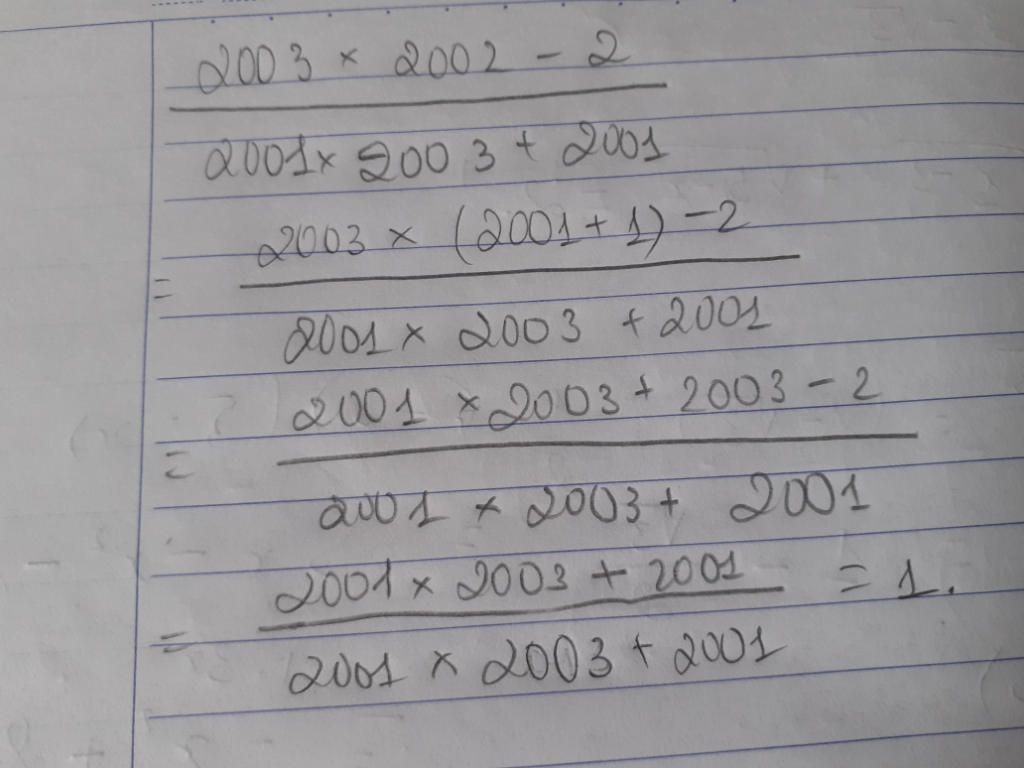 2003 × 2002 - 2
2001 × 2003 + 2001
2003 × (2001 + 1) - 2
=
2001 × 2003 + 2001
2001 × 2003 + 2003 - 2
=
2001 × 2003 + 2001
2001 × 2003 + 2001 = 1.
=
2001 × 2003 + 2001